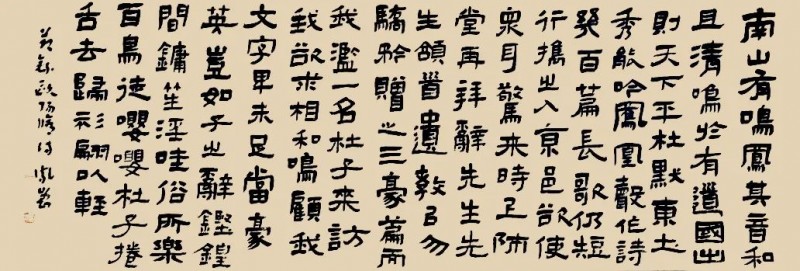 南山有鳴鳳其音和
且清鳴於有道國出
則天下平杜默東土
秀能吟鳳凰聲作詩
幾百篇長歌仍短
行攜之入京邑欲使
衆耳驚來時上師
堂再拜辭先生先
生頷首遣教以勿
驕矜贈之三豪篇而
我濫一名杜子來訪
我欲求相和鳴顧我
文字卑未足當豪
英豈如子之辭鏗鍠
間鏞笙淫哇俗所樂
百鳥徒嚶嚶杜子捲
舌去歸衫翩以輕
歐陽修詩